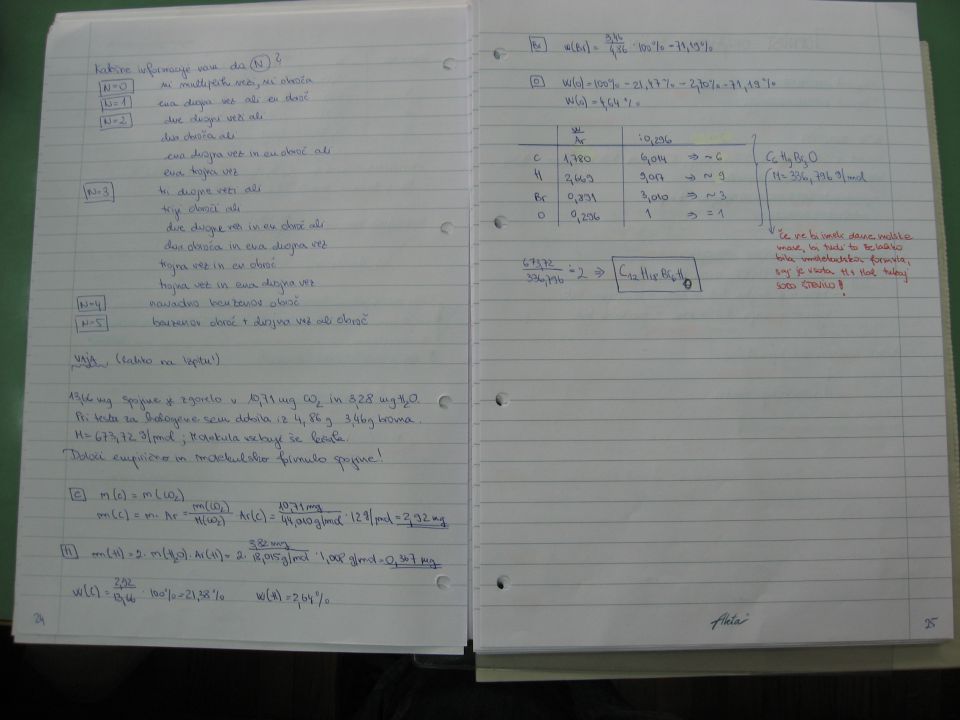 Kakšne informacije nam da N?
N=0 ni multiplih vezi, ni obroča
N=1 ena dvojna vez ali en obroč
N=2 dve dvojni vezi ali
dva obroča ali
ena dvojna vez in en obroč ali
ena trojna vez
N=3 tri dvojne vezi ali
trije obroči ali
dve dvojne vez in en obroč ali
dva obroča in ena dvojna vez
trojna vez in en obroč
trojna vez in ena dvojna vez
N=4 navadno benzenov obroč
N=5 benzenov obroč + dvojna vez ali obroč
VAJA (lahko na izpitu!)
13,66 mg spojine je zgorelo v 10,71 mg CO2 in 3,28 mg H2O.
Pri testu za halogene sem dobila iz 4,86 g 3,46 g broma.
M=673,72 g/mol; Molekula vsebuje še kisik.
Določi empirično in molekulsko formulo spojine!
C m(C) = m(CO2)
m(C) = m · Ar = m(CO2)/M(CO2) Ar(C) = 10,71 mg/44,010 g/mol · 12 g/mol = 2,92 mg
H m(H) = 2 · m(H2O) · Ar(H) = 2 · 3,82 mg/18,015 g/mol · 1,008 g/mol = 0,367 mg
w(C) = 2,92/13,66 · 100% = 21,38% w(H) = 2,64%
24
Br w(Br) = 3,46/4,86 · 100% = 71,19%
O w(O) = 100% - 21,47% - 2,70% - 71,19%
w(O) = 4,64%
w/Ar :0,296
C 1,780 6,014 ⇒ ~6
H 2,669 9,017 ⇒ ~9
Br 0,891 3,010 ⇒ ~3
O 0,296 1 ⇒ =1
C6H9Br3O
M=336,796 g/mol
če ne bi imeli dane molske
mase, bi tudi to že lahko
bila molekulska formula,
saj je vsota H + Hal tukaj
SODO ŠTEVILO!
673,72/336,796 = 2 ⇒ C12 H18 Br6
25